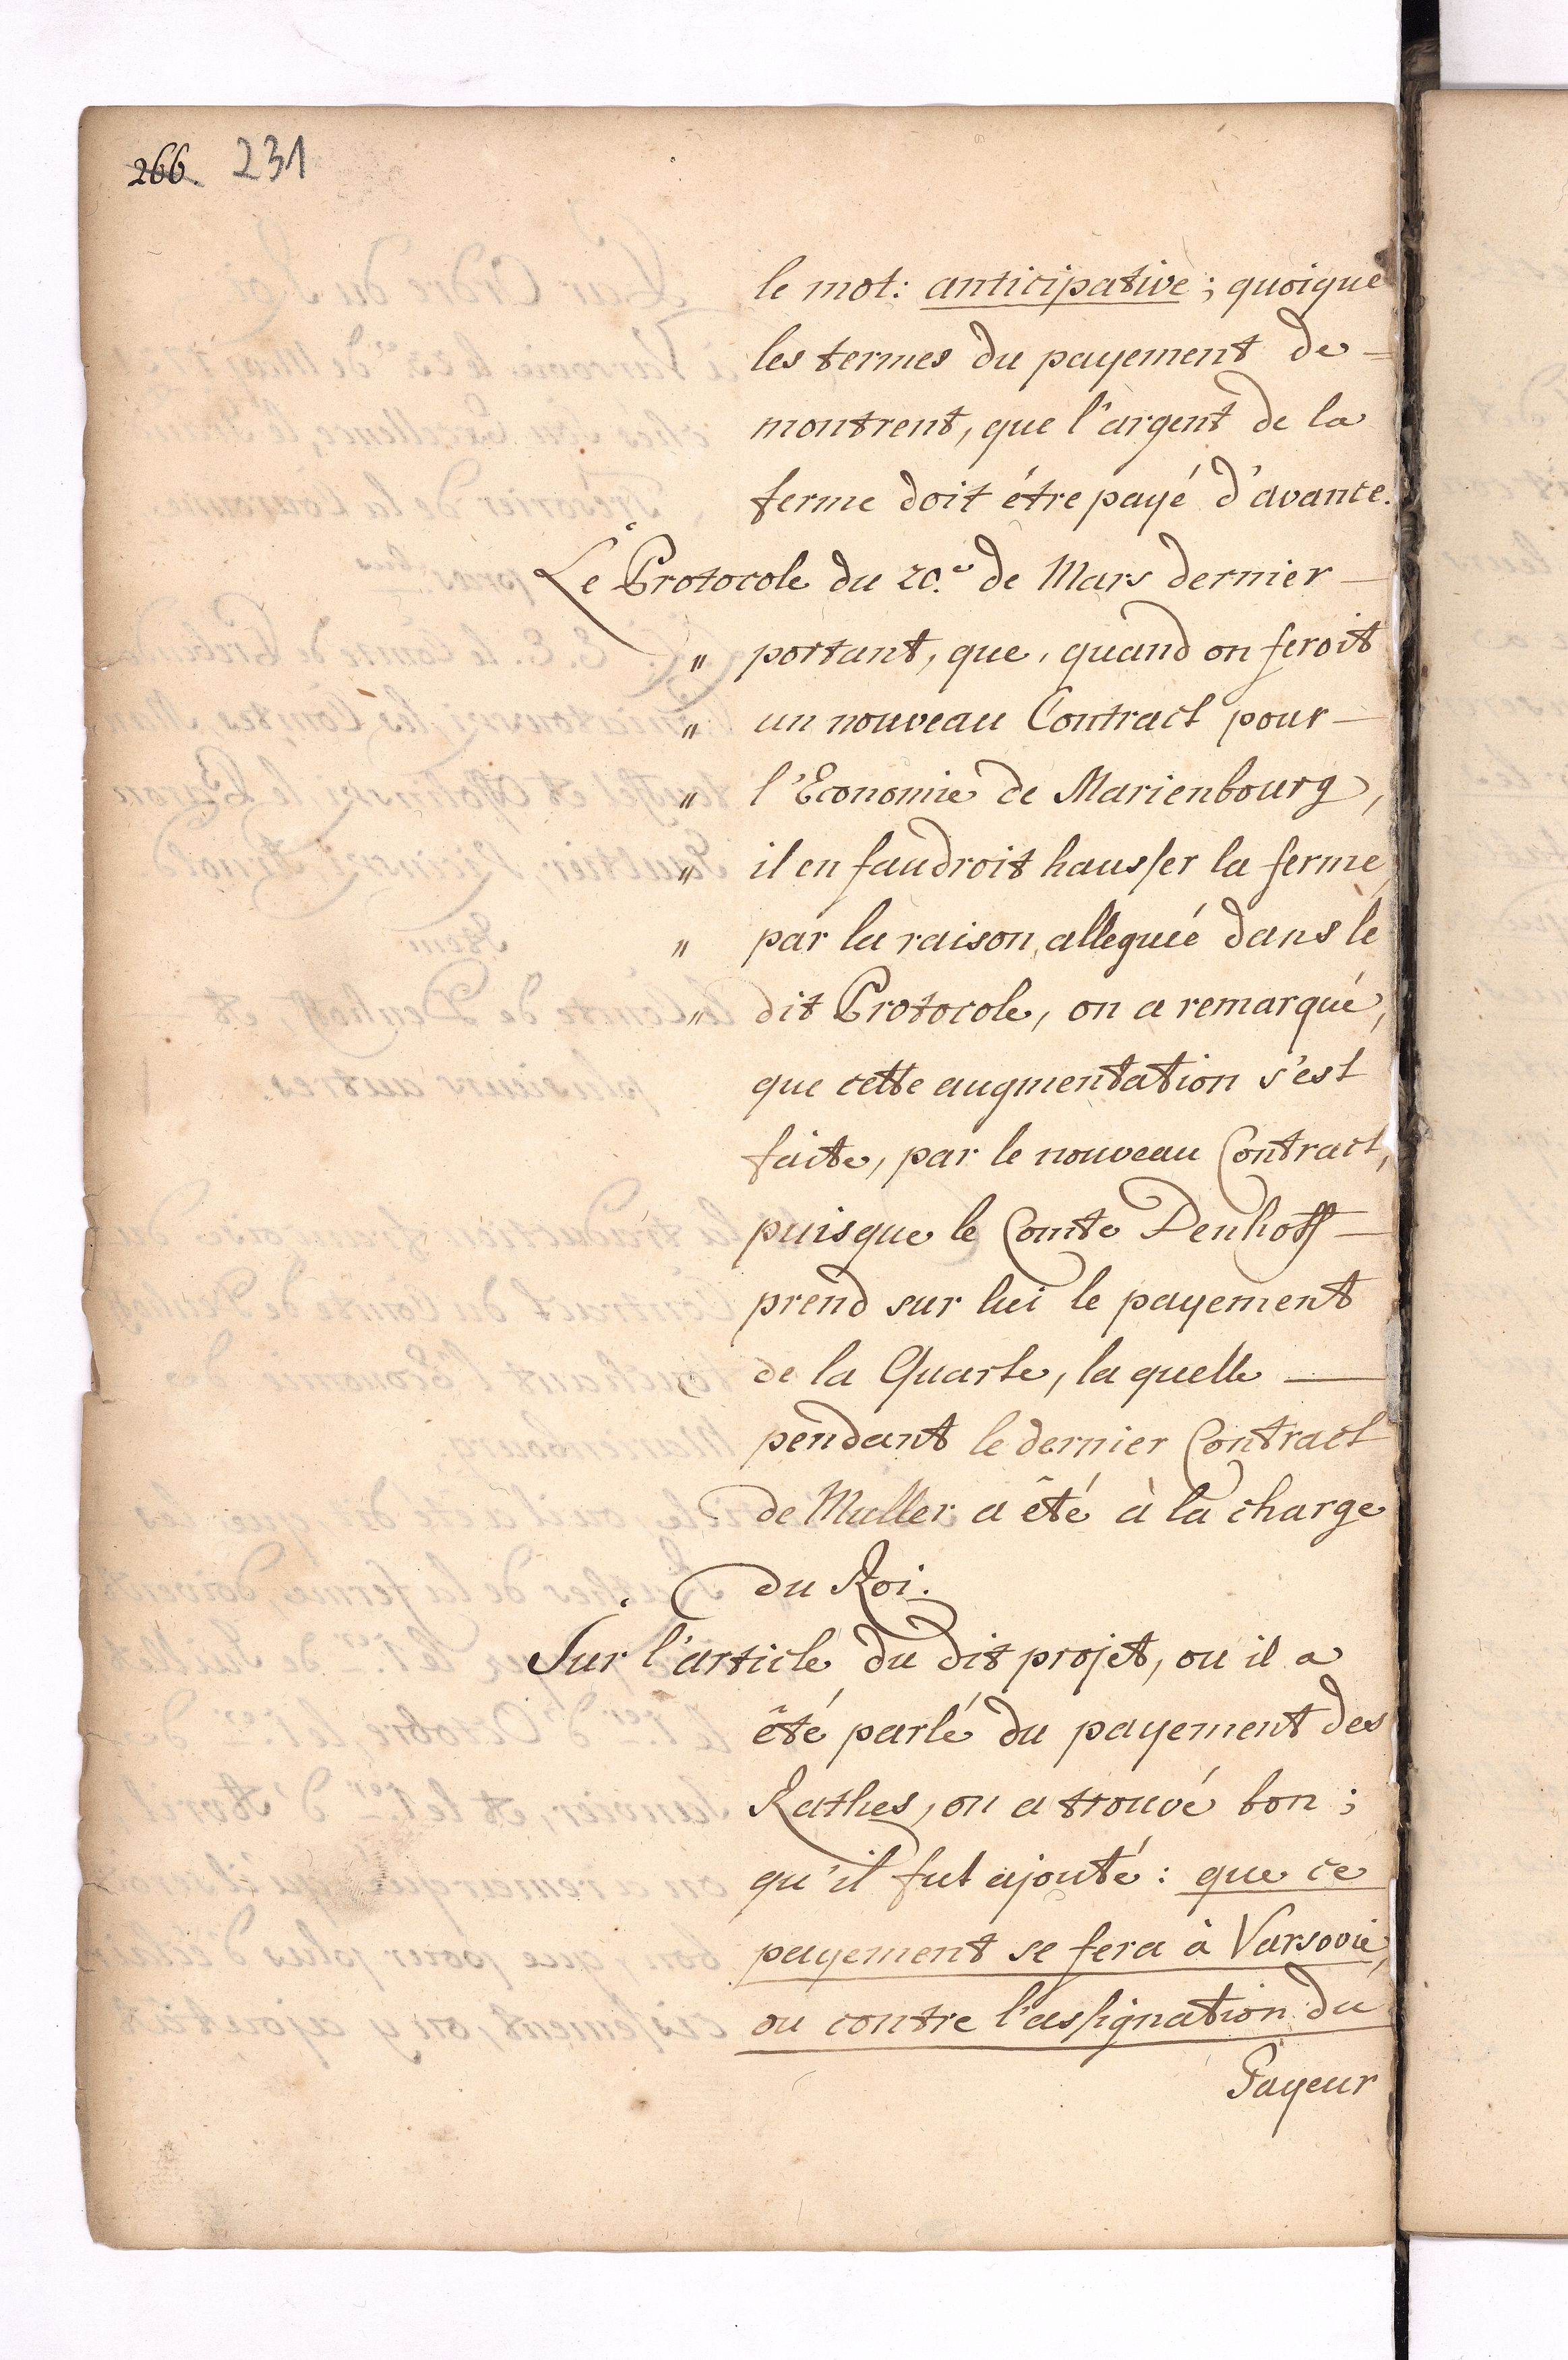 266. 231
le mot: anticipative; quoique
les termes du payement de=
montrent, que l'argent de la
ferme doit être payé d'avance.
Le Protocole du 20.e de Mars dernier —
" portant, que, quand on feroit
" un nouveau Contract pour —
" l'Economie de Marienbourg,
" il en faudroit hausser la ferme,
" par la raison, alleguée dans le
" dit Protocole, on a remarqué,
que cette augmentation s'est
faite, par le nouveau Contract,
puisque le Comte Denhoff —
prend sur lui le payement
de la Quarte, la quelle —
pendant le dernier Contract
de Muller a êté à la charge
du Roi.
Sur l'article du dit projet, ou il a
êté parlé du payement des
Rathes, on a trouvé bon;
qu'il fut ajouté: que ce
payement se fera à Varsovie,
ou contre l'assignation du
Payeur